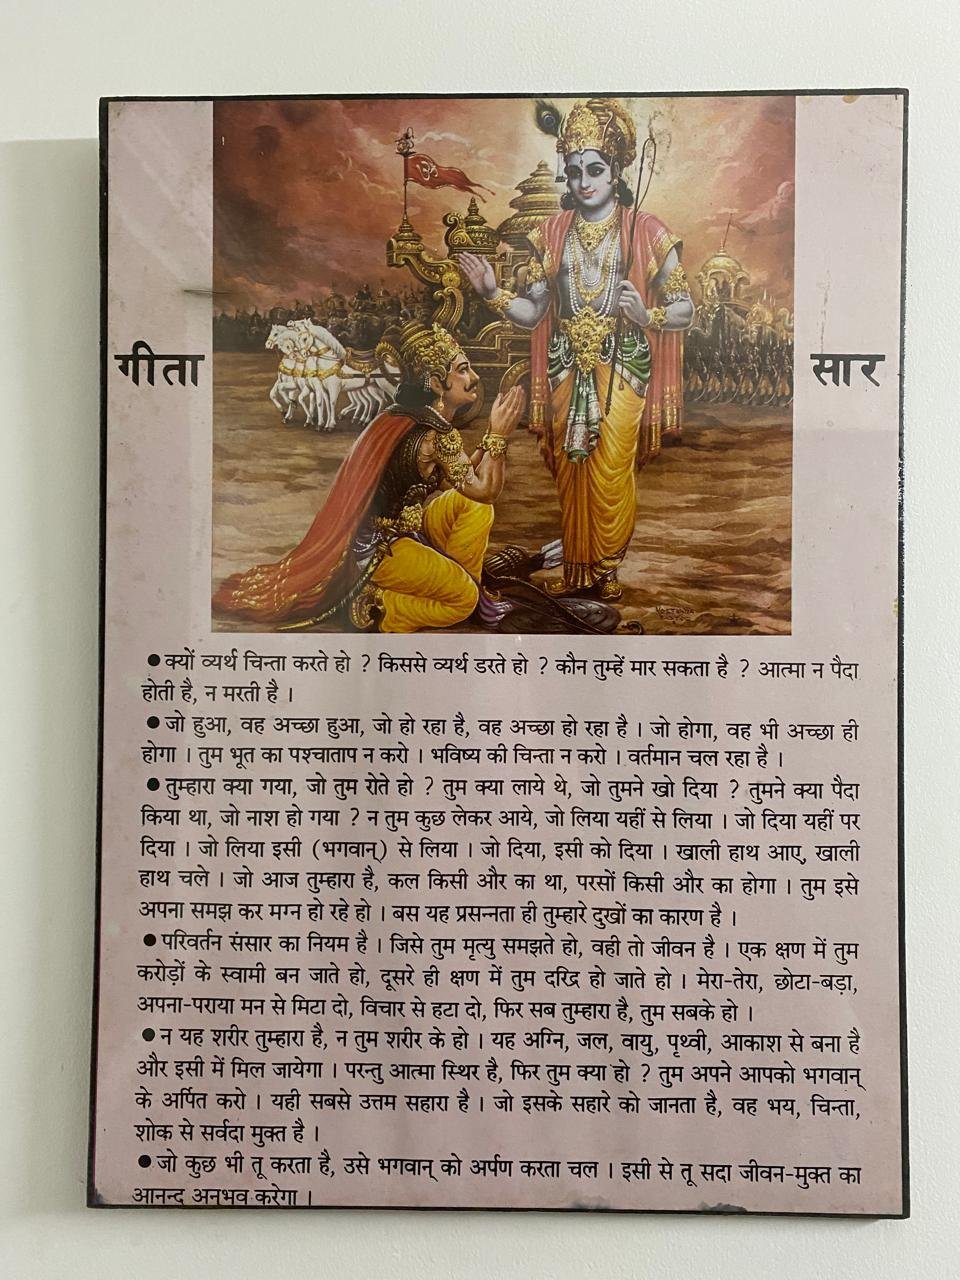 गीता
सार
●क्यों व्यर्थ चिन्ता करते हो ? किससे व्यर्थ डरते हो ? कौन तुम्हें मार सकता है ? आत्मा न पैदा
होती है, न मरती है ।
●जो हुआ, वह अच्छा हुआ, जो हो रहा है, वह अच्छा हो रहा है । जो होगा, वह भी अच्छा ही
होगा । तुम भूत का पश्चाताप न करो । भविष्य की चिन्ता न करो । वर्तमान चल रहा है ।
●तुम्हारा क्या गया, जो तुम रोते हो ? तुम क्या लाये थे, जो तुमने खो दिया ? तुमने क्या पैदा
किया था, जो नाश हो गया ? न तुम कुछ लेकर आये, जो लिया यहीं से लिया । जो दिया यहीं पर
दिया । जो लिया इसी (भगवान्) से लिया । जो दिया, इसी को दिया । खाली हाथ आए, खाली
हाथ चले । जो आज तुम्हारा है, कल किसी और का था, परसों किसी और का होगा । तुम इसे
अपना समझ कर मग्न हो रहे हो । बस यह प्रसन्नता ही तुम्हारे दुखों का कारण है ।
●परिवर्तन संसार का नियम है । जिसे तुम मृत्यु समझते हो, वही तो जीवन है । एक क्षण में तुम
करोड़ों के स्वामी बन जाते हो, दूसरे ही क्षण में तुम दरिद्र हो जाते हो । मेरा-तेरा, छोटा-बड़ा,
अपना-पराया मन से मिटा दो, विचार से हटा दो, फिर सब तुम्हारा है, तुम सबके हो ।
●न यह शरीर तुम्हारा है, न तुम शरीर के हो । यह अग्नि, जल, वायु, पृथ्वी, आकाश से बना है
और इसी में मिल जायेगा । परन्तु आत्मा स्थिर है, फिर तुम क्या हो ? तुम अपने आपको भगवान्
के अर्पित करो । यही सबसे उत्तम सहारा है । जो इसके सहारे को जानता है, वह भय, चिन्ता,
शोक से सर्वदा मुक्त है ।
●जो कुछ भी तू करता है, उसे भगवान् को अर्पण करता चल । इसी से तू सदा जीवन-मुक्त का
आनन्द अनुभव करेगा ।